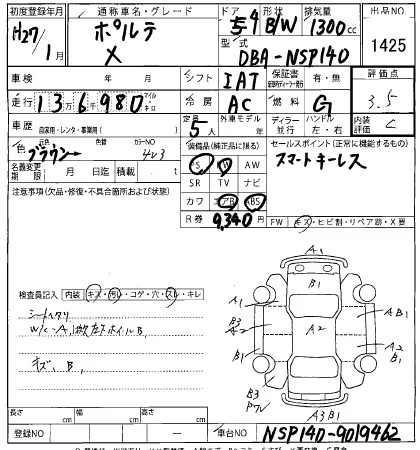 初度登録年月 通称車名・グレード ドア 形状 排気量 出品NO
H27/1月 ポルテ X 5ドア B/W 1300cc 1425
型式 DBA-NSP140
車検 年 月 シフト IAT 保証書 有・無 評価点
走行 136980 マイル キロ 冷房 AC 燃料 G 3.5
車歴 自家用・レンタ・事業用( ) 定員 5人 外車モデル 年 ディーラー 並行 ハンドル 左・右 内装評価 C
色 元色 ブラウン 色替 カラーNO 4U3
装備品(純正品に限る) セールスポイント(正常に機能するもの)
PS PW AW スマートキーレス
名義変更期限 月 日迄 積載 t SR TV ナビ
注意事項(欠品・修復・不具合箇所および状態) カワ エアB ABS
R券 9,340円 FW キズ・ヒビ割・リペア跡・X要
A1
B1
検査員記入 内装 キズ・汚レ・コゲ・穴・スレ・キレ
A1 A B1
シートヘタリ
B3 A2 A2 A2
W/C-A1
B1 B1
キズ、B、
B3
A3B1
長さ cm 幅 cm 高さ cm
登録NO 車台NO NSP140-9019462